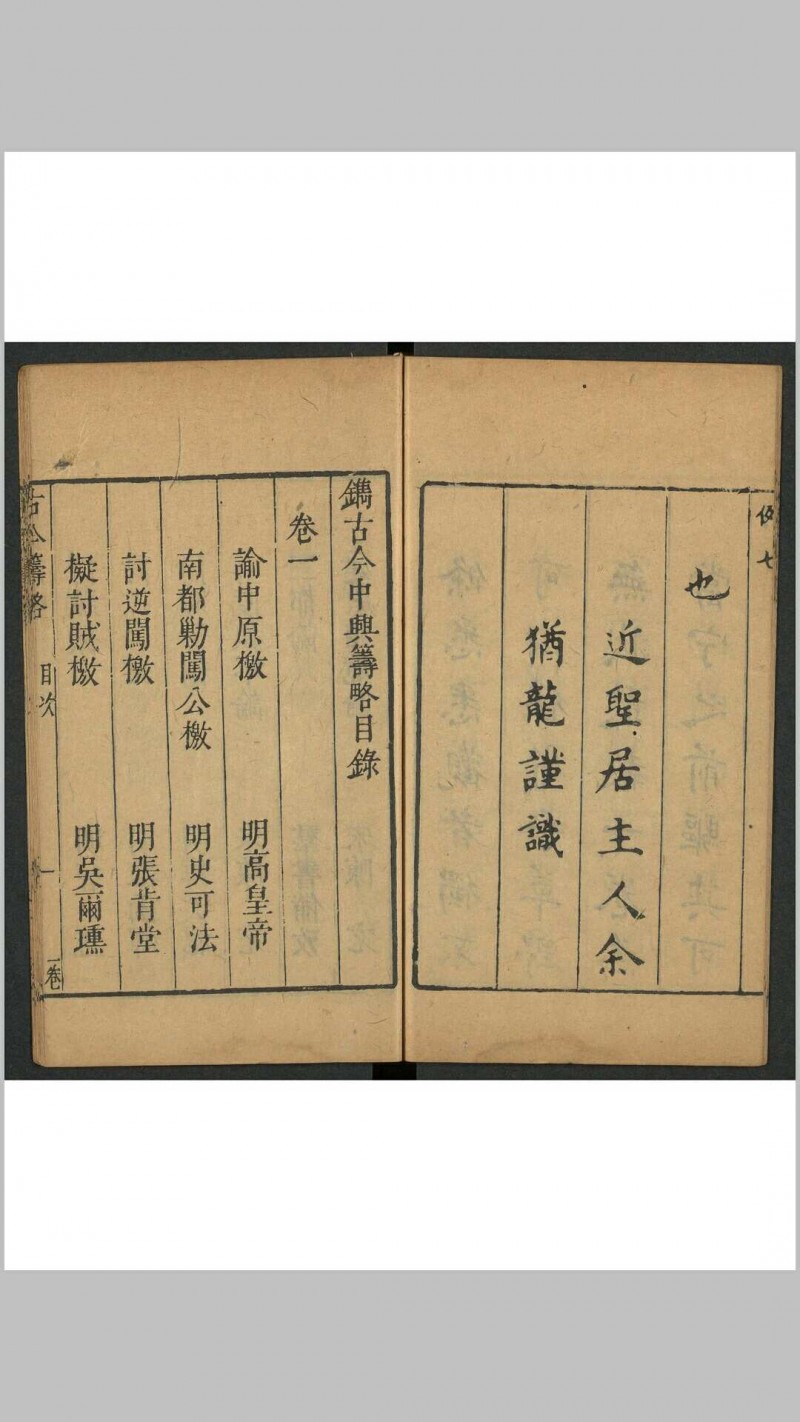 例七
也
近聖居主人余
猶龍謹識
鐫古今中興籌略目錄
卷一
諭中原檄 明高皇帝
南都勦闖公檄 明史可法
討逆闖檄 明張肯堂
擬討賊檄 明吳爾壎
古今籌略 目次 一 一卷